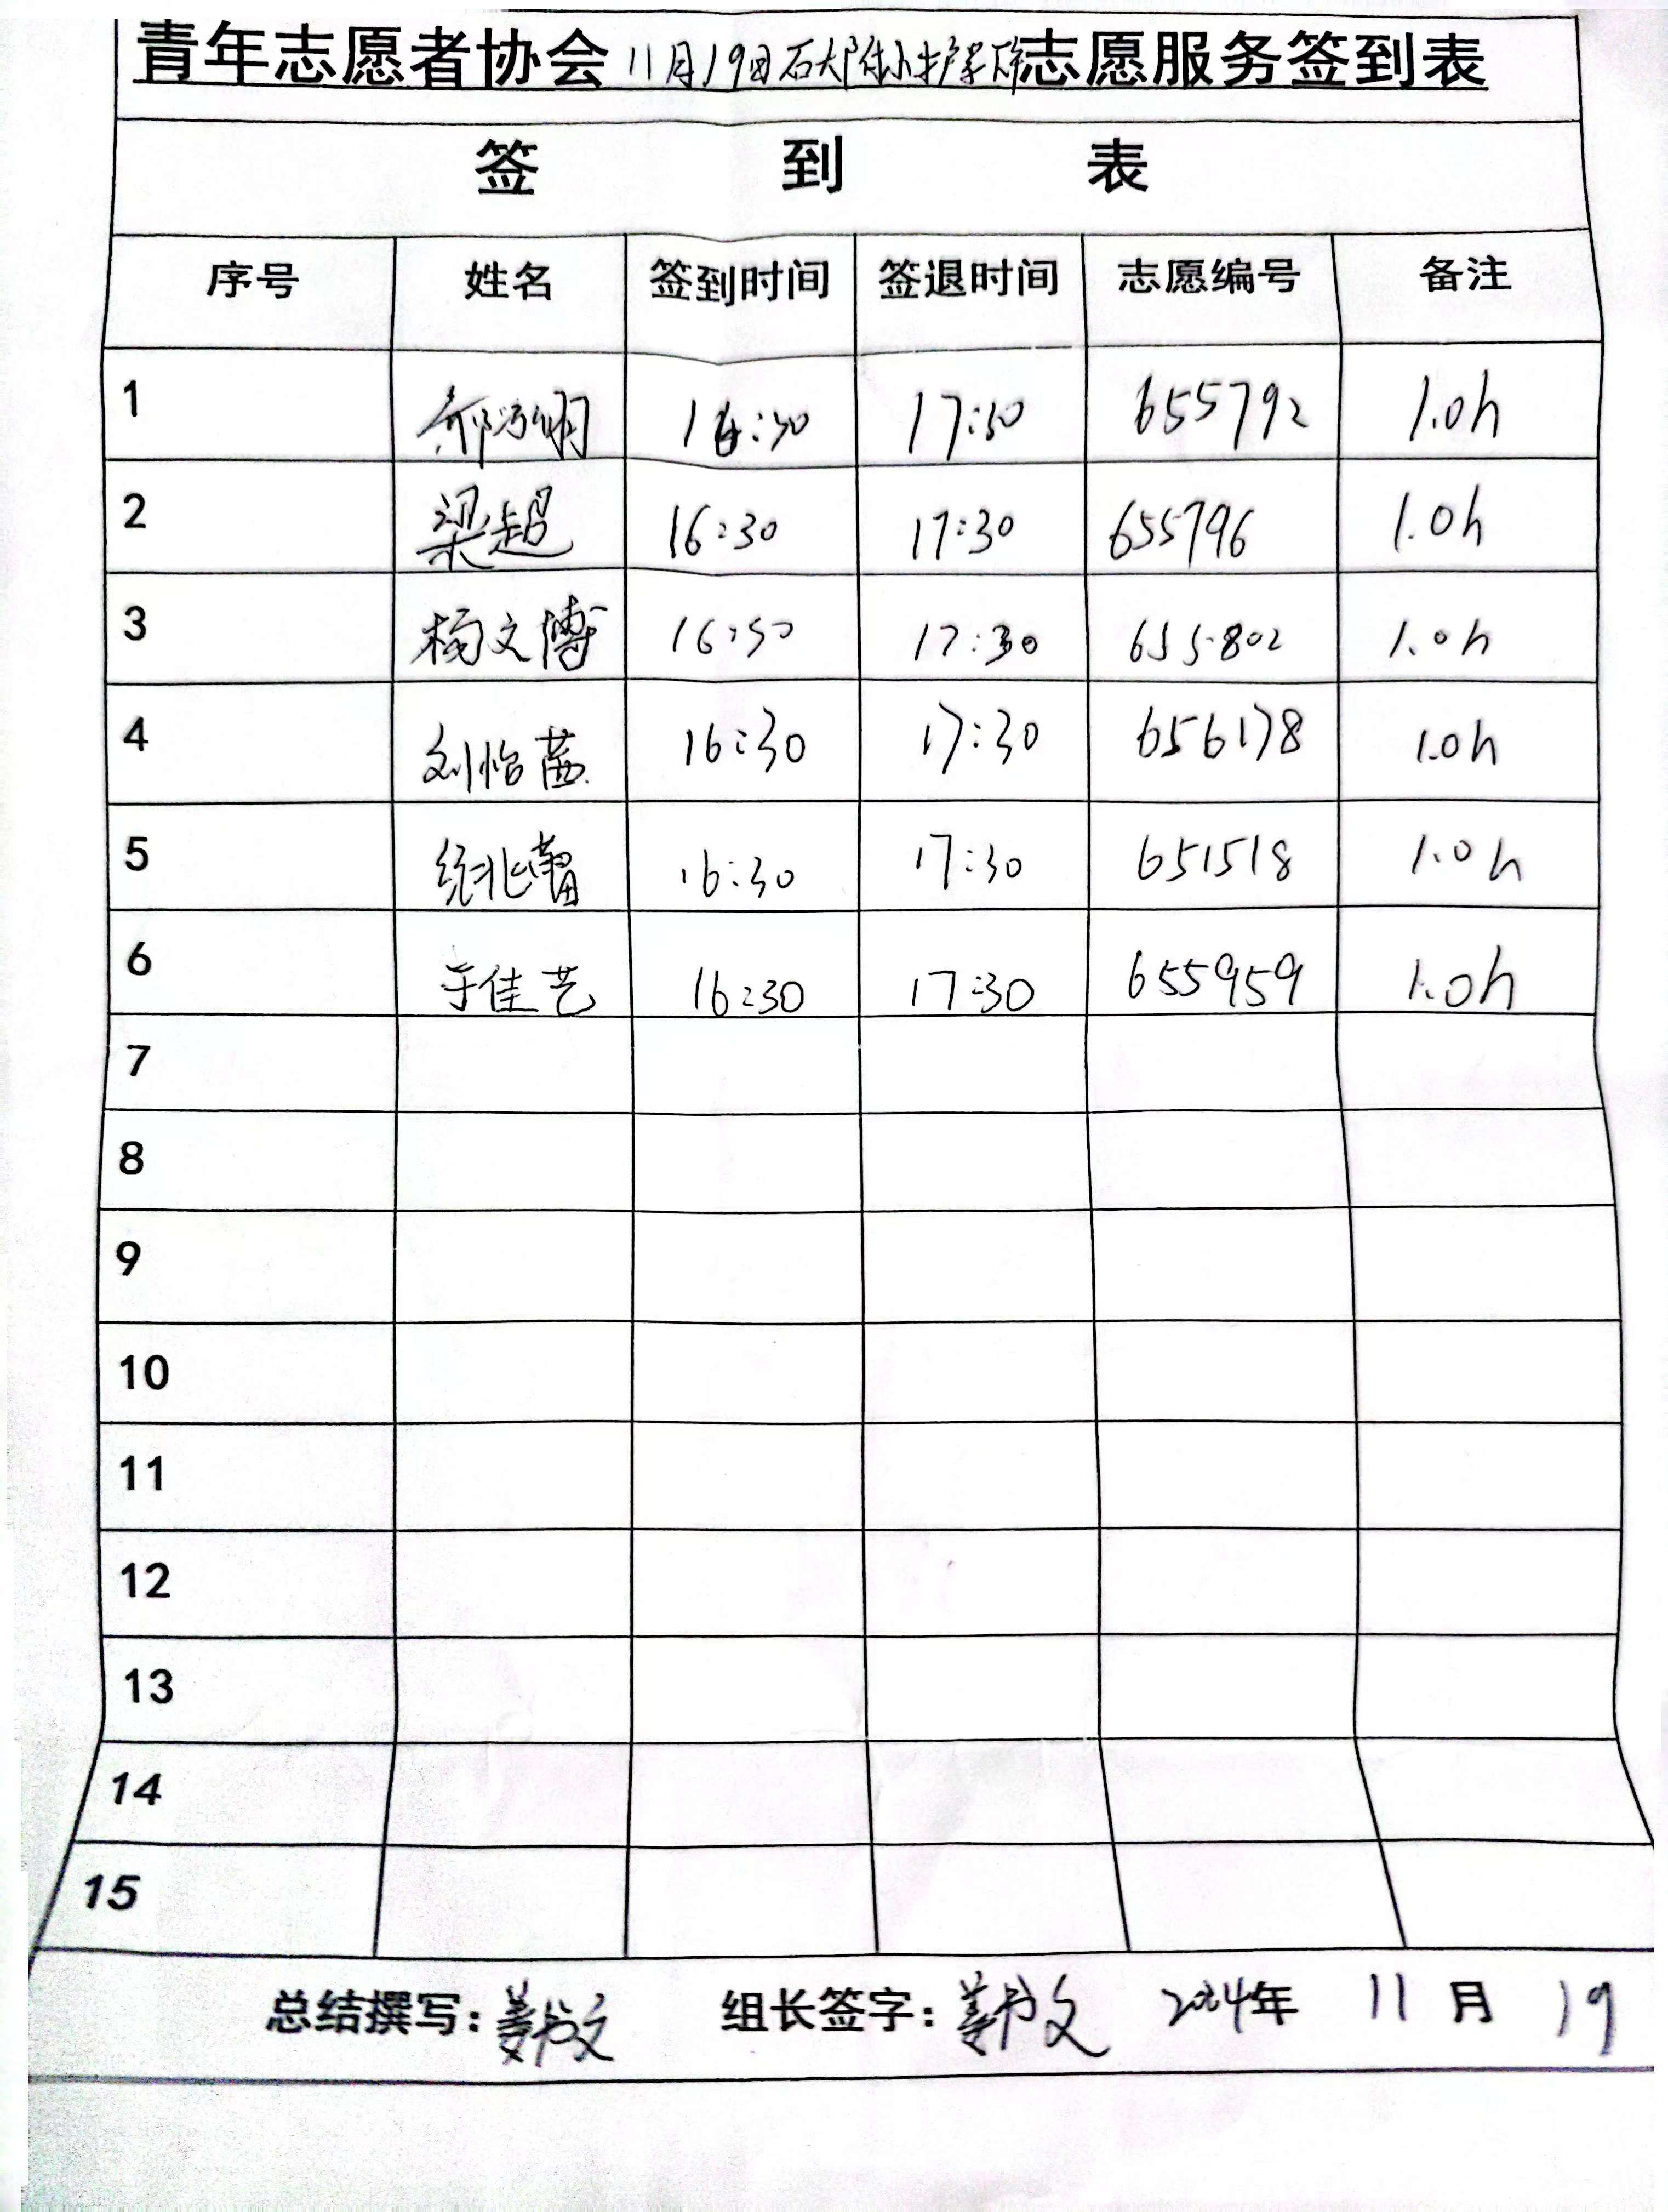 青年志愿者协会11月19日石大附小护学岗志愿服务签到表
签 到 表
序号 姓名 签到时间 签退时间 志愿编号 备注
1 16:30 17:30 655792 1.0h
2 梁超 16:30 17:30 655796 1.0h
3 杨文博 16:30 17:30 655802 1.0h
4 刘怡茜 16:30 17:30 656178 1.0h
5 16:30 17:30 651518 1.0h
6 于佳艺 16:30 17:30 655959 1.0h
7
8
9
10
11
12
13
14
15
总结撰写:姜书文 组长签字:姜书文 2024年 11 月 19